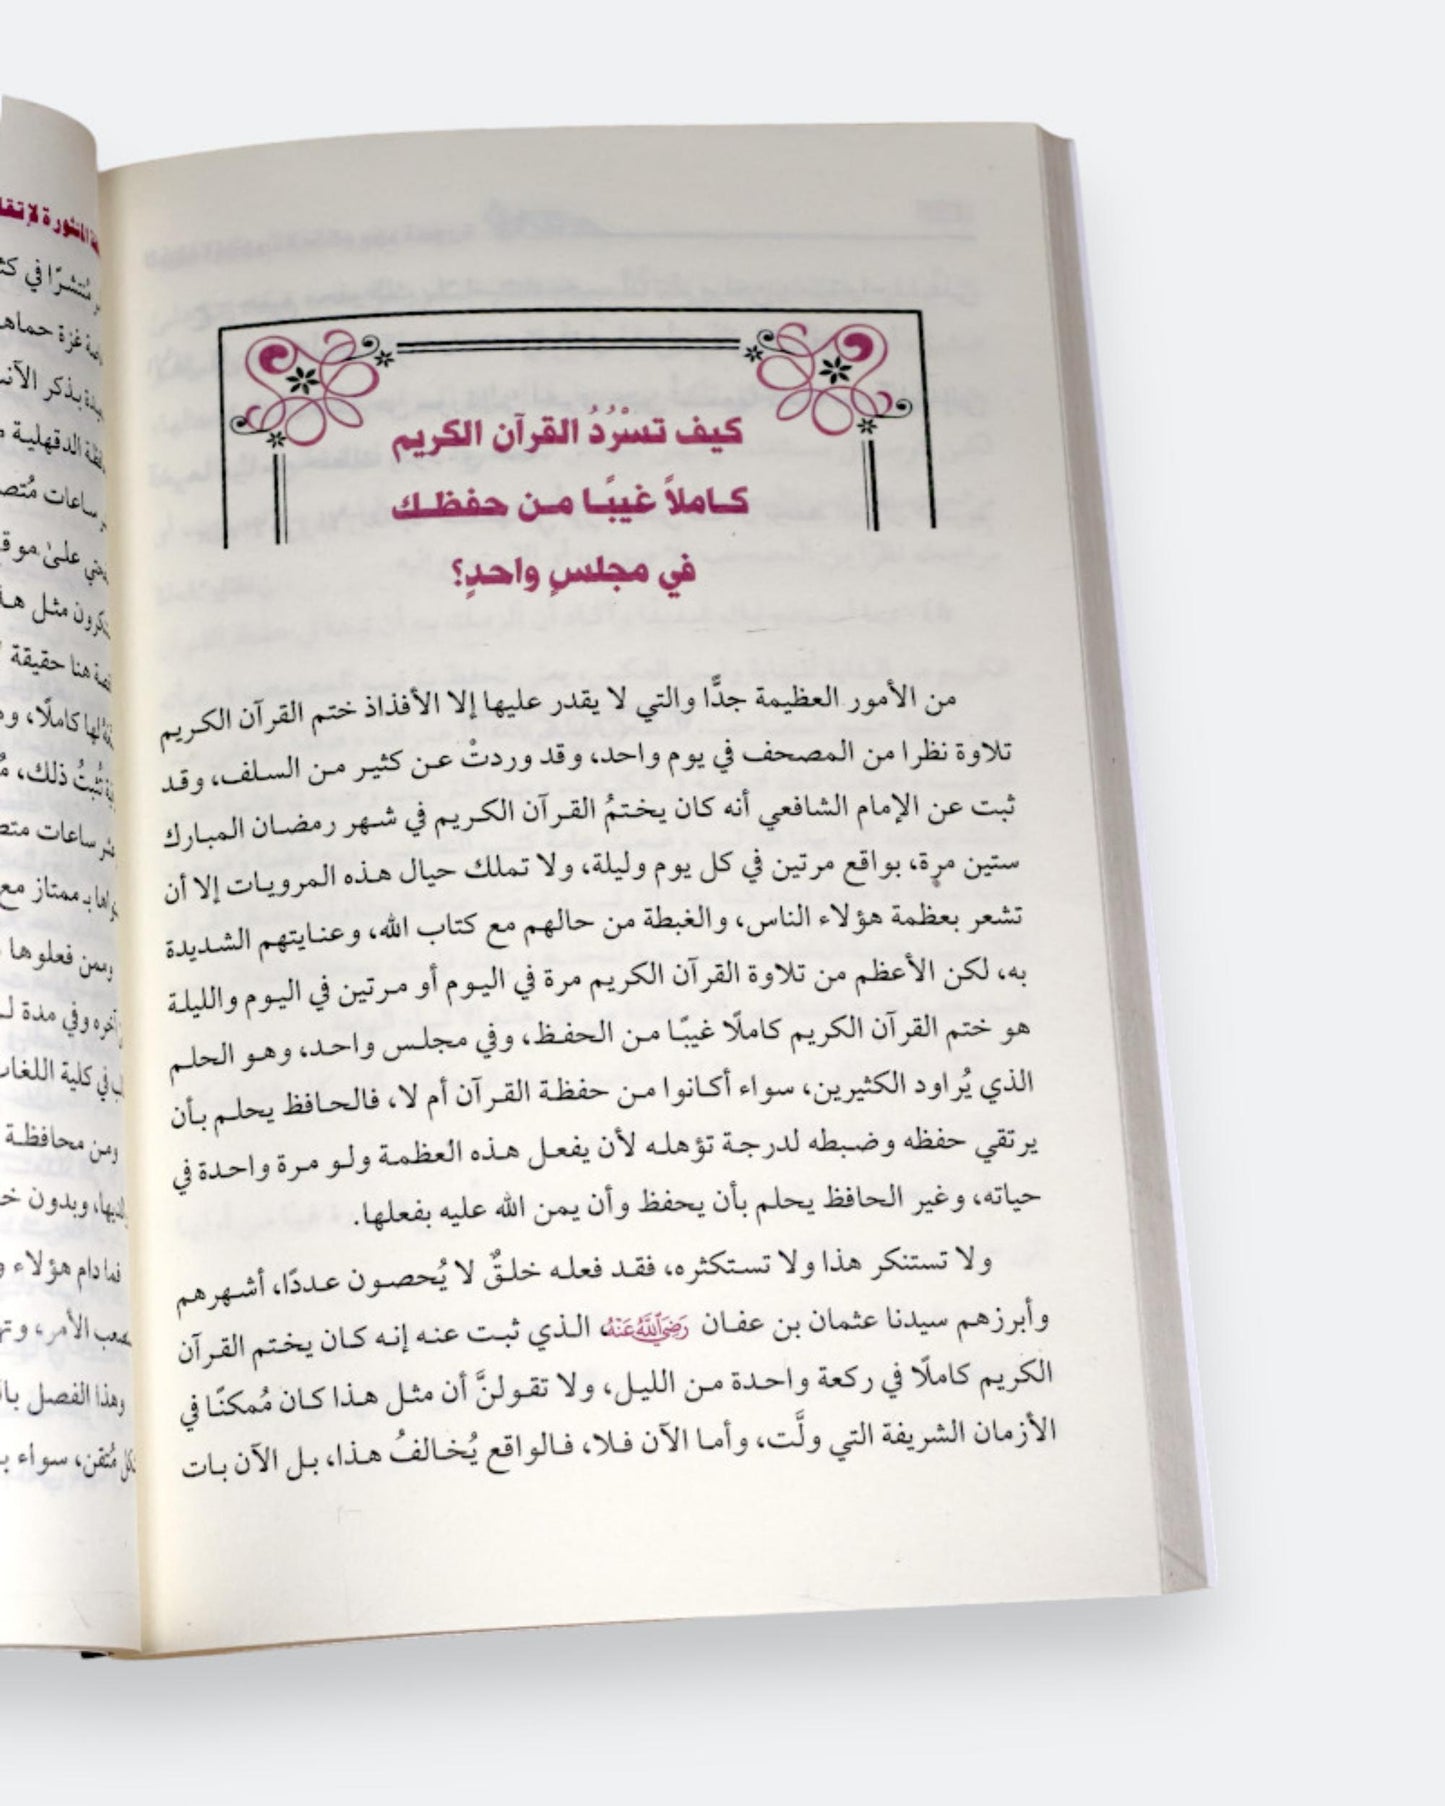 كيف تسْرُدُ القرآن الكريم
كاملاً غيبًا من حفظك
في مجلسٍ واحدٍ؟
من الأمور العظيمة جدًّا والتي لا يقدر عليها إلا الأفذاذ ختم القرآن الكريم
تلاوة نظرا من المصحف في يوم واحد، وقد وردتْ عن كثير من السلف، وقد
ثبت عن الإمام الشافعي أنه كان يختمُ القرآن الكريم في شهر رمضان المبارك
ستين مرة، بواقع مرتين في كل يوم وليلة، ولا تملك حيال هذه المرويات إلا أن
تشعر بعظمة هؤلاء الناس، والغبطة من حالهم مع كتاب الله، وعنايتهم الشديدة
به، لكن الأعظم من تلاوة القرآن الكريم مرة في اليوم أو مرتين في اليوم والليلة
هو ختم القرآن الكريم كاملًا غيبًا من الحفظ، وفي مجلس واحد، وهو الحلم
الذي يُراود الكثيرين، سواء أكانوا من حفظة القرآن أم لا، فالحافظ يحلم بأن
يرتقي حفظه وضبطه لدرجة تؤهله لأن يفعل هذه العظمة ولو مرة واحدة في
حياته، وغير الحافظ يحلم بأن يحفظ وأن يمن الله عليه بفعلها.
ولا تستنكر هذا ولا تستكثره، فقد فعله خلقٌ لا يُحصون عددًا، أشهرهم
وأبرزهم سيدنا عثمان بن عفان رَضِيَ اللَّهُ عَنْهُ، الذي ثبت عنه إنه كان يختم القرآن
الكريم كاملًا في ركعة واحدة من الليل، ولا تقولنَّ أن مثل هذا كان مُمكنًا في
الأزمان الشريفة التي ولَّت، وأما الآن فلا، فالواقع يُخالفُ هذا، بل الآن بات
مُنتشرًا في
غزة
بذكر
الدقهلية
ساعات
على
مثل
هنا حقيقة
كاملًا،
ذلك،
ساعات
بـ ممتاز مع
وممن فعلوها
وفي مدة
في كلية
ومن محافظة
وبدون
فما دام هؤلاء
الأمر،
وهذا الفصل
مُتقن، سواء